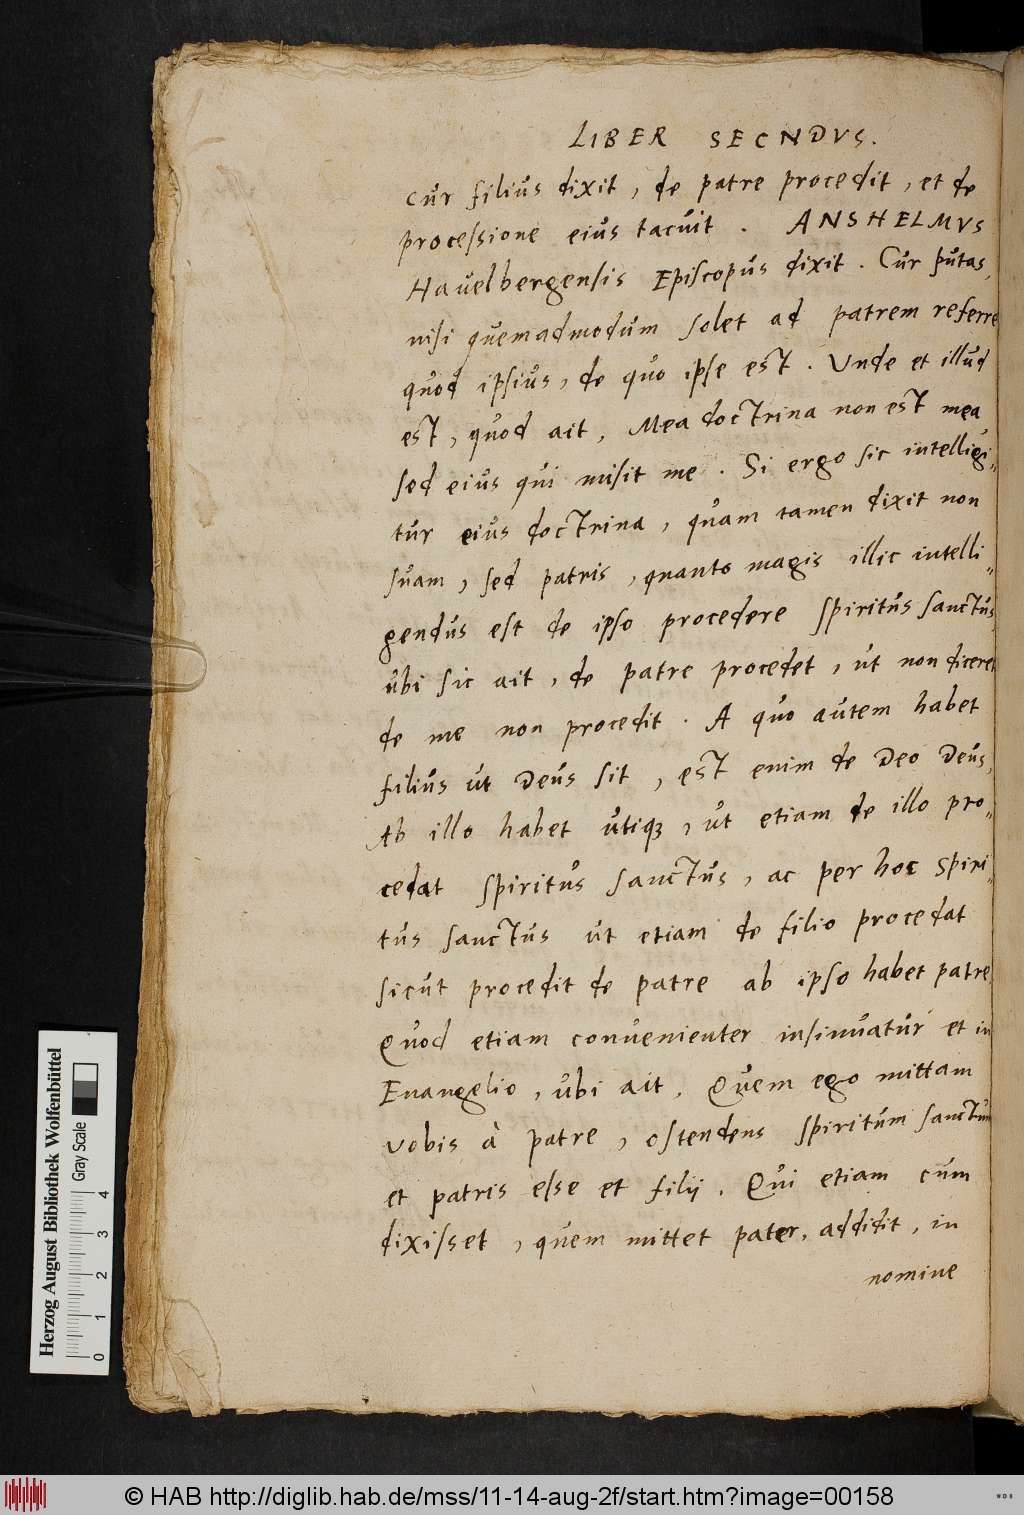 LIBER SECNDVS.
cur filius dixit, de patre procedit, et de
processione eius tacuit. ANSHELMVS
Havelbergensis Episcopus dixit. Cur putas,
nisi quemadmodum solet ad patrem referre
quod ipsius, de quo ipse est. Unde et illud
est, quod ait, Mea doctrina non est mea
sed eius qui misit me. Si ergo sic intelligi„
tur eius doctrina, quam tamen dixit non
suam, sed patris, quanto magis illic intelli„
gendus est de ipso procedere spiritus sanctus,
ubi sic ait, de patre procedet, ut non diceret
de me non procedit. A quo autem habet
filius ut Deus sit, est enim de Deo Deus,
Ab illo habet utiq3, ut etiam de illo pro„
cedat spiritus sanctus, ac per hoc Spiri„
tus sanctus ut etiam de filio procedat
sicut procedit de patre ab ipso habet patre
Quod etiam convenienter insinuatur et in
Euangelio, ubi ait. Quem ego mittam
vobis à patre, ostendens spiritum sanctum
et patris esse et filij. Qui etiam cum
dixisset, quem mittet pater, addidit, in
nomine
Herzog August Bibliothek Wolfenbüttel
Gray Scale
0 1 2 3 4
© HAB http://diglib.hab.de/mss/11-14-aug-2f/start.htm?image=00158